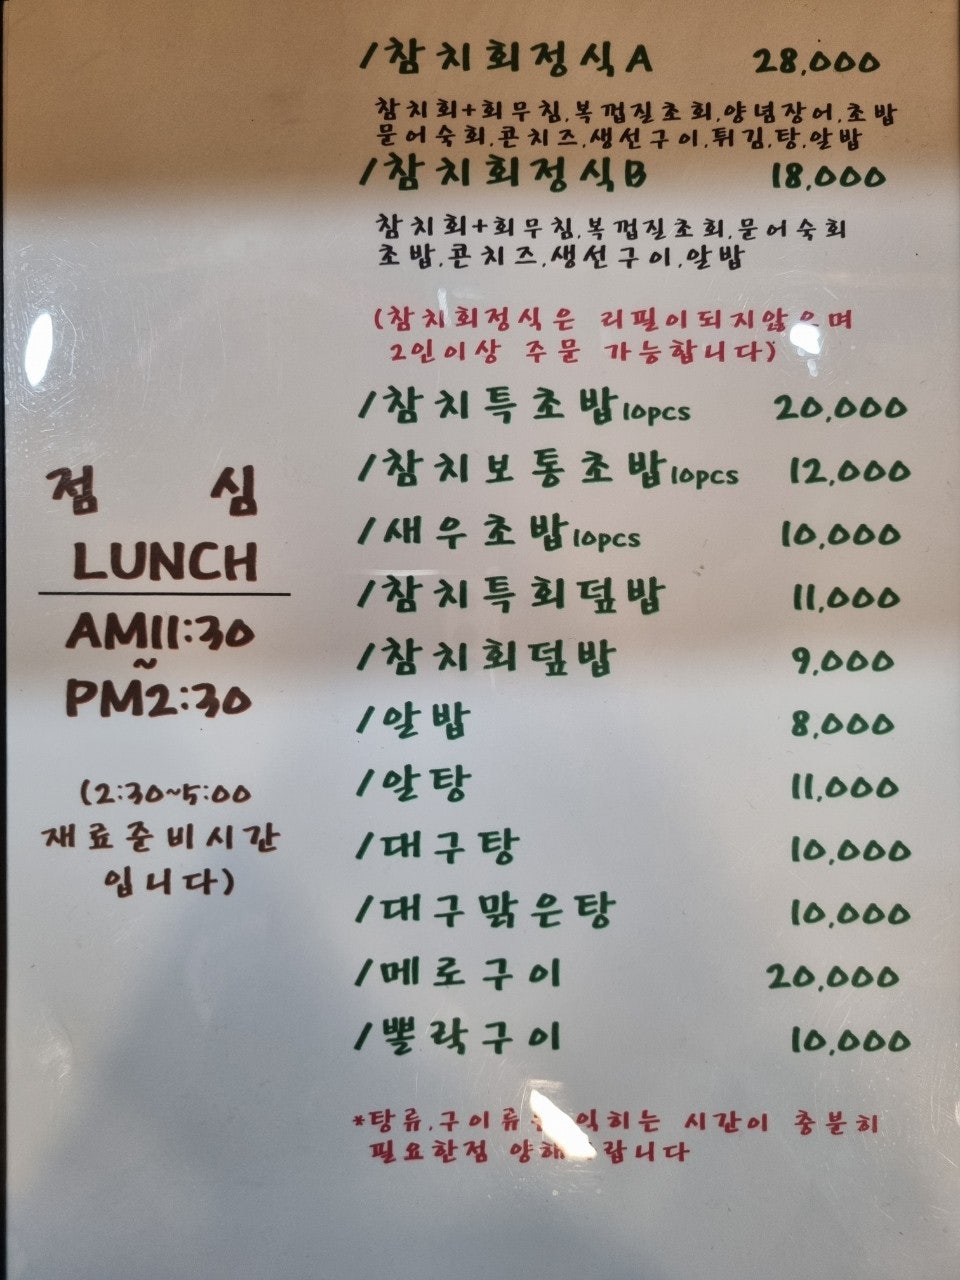 /참치회정식A 28,000
참치회+회무침,복껍질초회,양념장어,초밥
문어숙회,콘치즈,생선구이,튀김,탕,알밥
/참치회정식B 18,000
참치회+회무침,복껍질초회,문어숙회
초밥,콘치즈,생선구이,알밥
(참치회정식은 리필이되지않으며
2인이상 주문 가능합니다)
/참치특초밥10pcs 20,000
/참치보통초밥10pcs 12,000
/새우초밥10pcs 10,000
/참치특회덮밥 11,000
/참치회덮밥 9,000
/알밥 8,000
/알탕 11,000
/대구탕 10,000
/대구맑은탕 10,000
/메로구이 20,000
/뽈락구이 10,000
*탕류,구이류 익히는 시간이 충분히
필요한점
점심
LUNCH
AM11:30
~
PM2:30
(2:30~5:00
재료준비시간
입니다)